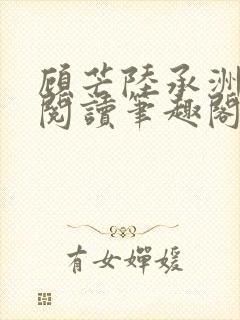 顾芒陸承洲
閱讀筆趣閣
有女嬋媛